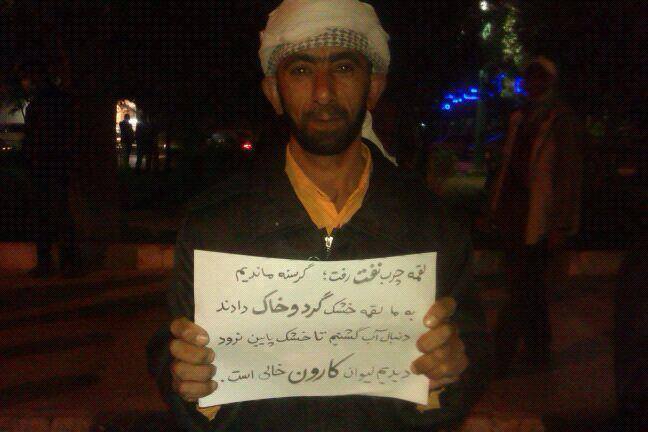 لقمه چرب نفت رفت؛ گرسنه ماندیم
به ما لقمه خشک گرد و خاک دادند
دنبال آب گشتیم تا خشک پایین نرود
دیدیم لیوان کارون خالی است.